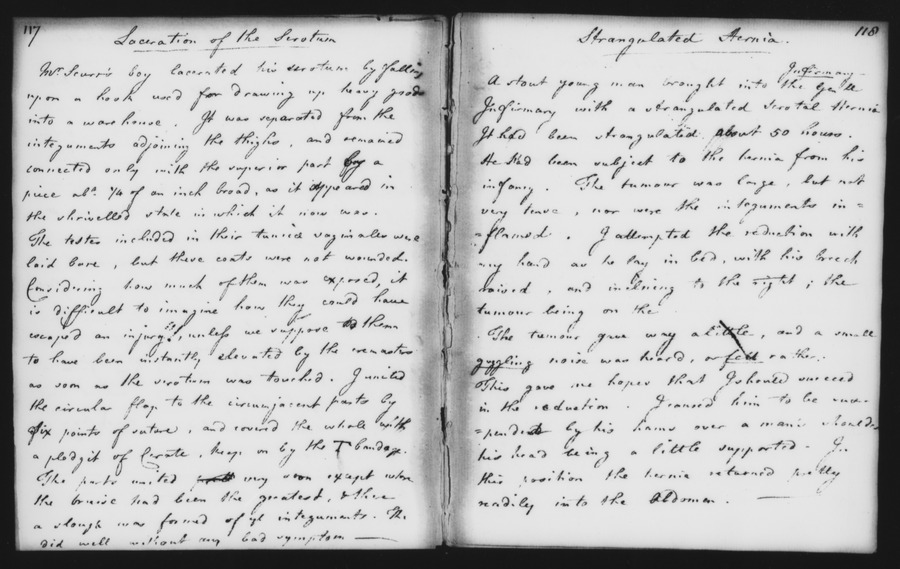 117
Laceration of the Scrotum
Mr. Scurr's boy lacerated his scrotum by falling
upon a hook used for drawing up heavy goods
into a warehouse. It was separated from the
integuments adjoining the thighs, and remained
connected only with the superior part by a
piece abt. 1/4 of an inch broad, as it appeared in
the shrivelled state in which it now was.
The testes included in their tunicæ vaginales were
laid bare, but these coats were not wounded.
Considering how much of them was exposed, it
is difficult to imagine how they could have
escaped an injury, unless we suppose them
to have been instantly elevated by the cremasters
as soon as the scrotum was touched. I united
the circular flap to the circumjacent parts by
six points of suture, and covered the whole with
a pledgit of Cerate, kept on by the T bandage.
The parts united very soon except where
the bruise had been the greatest, & there
a slough was formed of ye integuments. He
did well without any bad symptom —
118
Strangulated Hernia.
Infirmary
A stout young man brought into the
Infirmary with a strangulated Scrotal Hernia
It had been strangulated about 50 hours.
He had been subject to the hernia from his
infancy. The tumour was large, but not
very tense, nor were the integuments in=
=flamed. I attempted the reduction with
my hand as he lay in bed, with his breech
raised, and inclining to the right; the
tumour being on the
The tumour gave way a little, and a small
guggling noise was heard, or felt rather.
This gave me hopes that I should succeed
in the reduction. I caused him to be sus=
=pended by his hams over a man's shoulders
his head being a little supported. In
this position the hernia returned pretty
readily into the abdomen. —